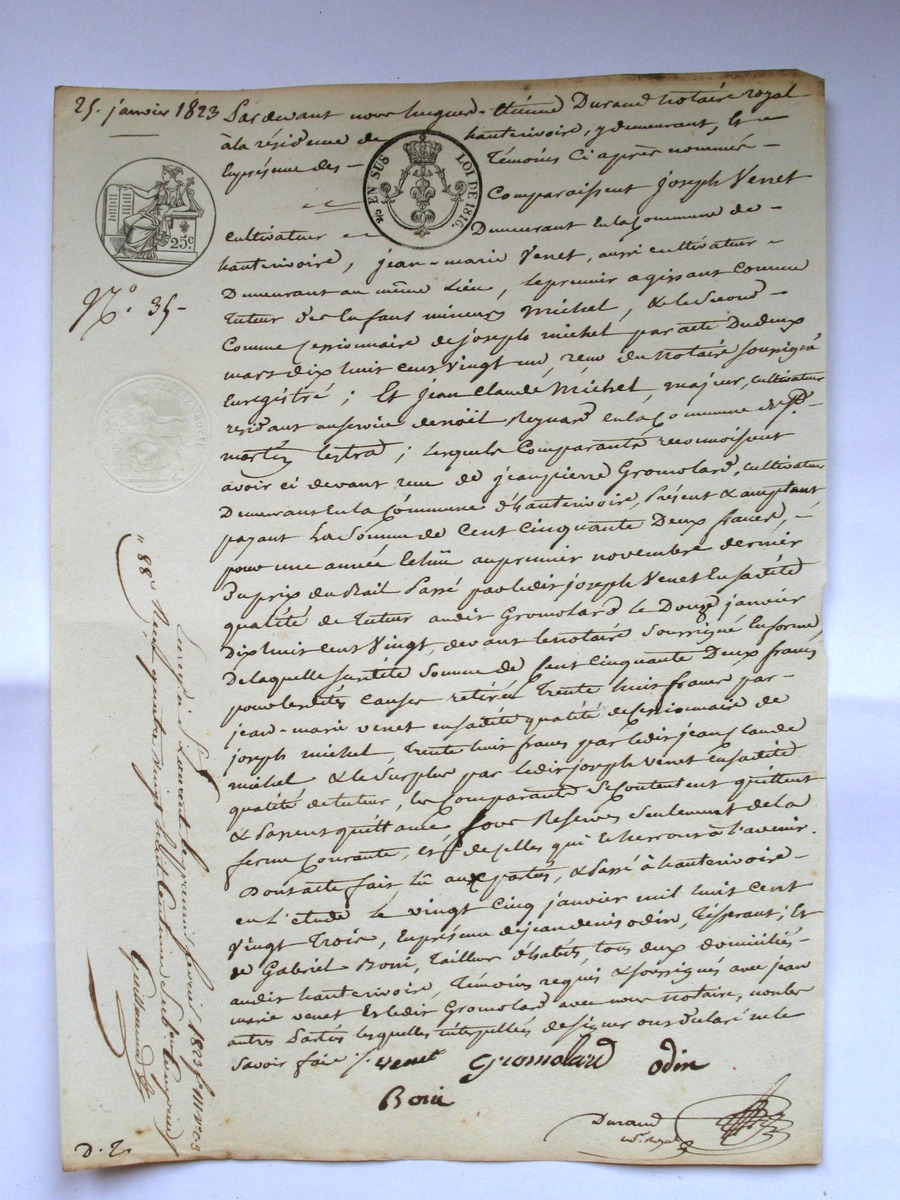 25. janvier 1823 Par devant nous hugues-Etiéne Durand Notaire royal
à la résidence de hauterivoire, y demeurant, Et
En présence des témoins Ci après nommés
EN SUS LOI DE 1816.
Comparaissent joseph Venet
25c.
Cultivateur Demeurant En la Commune de
hauterivoire, jean-marie Venet, aussi cultivateur
Demeurant au même Lieu, le premier agissant Comme
N.º 35
tuteur des Enfant mineurs Michel, & le Second
Comme Cessionnaire de joseph michel par acte Du deux
mars dix huit cent vingt un, reçu du Notaire soussigné
Enregistré; Et jean Claude Michel, majeur, cultivateur
résidant au service de noël Reynard en la Commune de St.
martin lestra; lesquels Comparants reconnoissent
avoir ci devant reçu de jean pierre Gromolard, cultivateur
Demeurant En la Commune d'hauterivoire, Présent & acceptant
payant La Somme de Cent Cinquante Deux francs,
pour une année Echüe au premier novembre dernier
Du prix du Bail Passé par ledit joseph Venet En sadité
qualité de Tuteur audit Gromolard le Douze janvier
Dix huit cent Vingt, devant le notaire Soussigné En forme
De laquelle susdite Somme de Cent Cinquante Deux francs
pour lesdites causes retirée Trente huit francs par
jean-marie venet en sadite qualité de Cessionnaire de
joseph michel, Trente huit francs par ledit jean Claude
michel & le Surplus par ledit joseph Venet En sadité
qualité de tuteur, les Comparants Se Contentent quittent
& Passent quittance sous Reserves Seulement de la
ferme Courante, et de celles qui Echerront à l'avenir.
Dont acte fait, lû aux partés, & Passé à hauterivoire
en L'étude le vingt Cinq janvier mil huit cent
Vingt Trois, En présence de jean denis odin, Tisserant; Et
de Gabriel Boni, Tailleur d'habits, tous deux domiciliés
audit hauterivoire, Témoins requis & soussignés avec jean
marie venet Et ledit Gromolard avec nous notaire, non les
autres Partés lesquelles interpellées de signer ont déclaré ne le
Savoir faire ./. Venet Gromolard odin
Boni
Durand
no. Royal
D. T.
Enregé à St Laurent le premier fevrier 1823
88c Reçu quatre vingt huit Centime Subon Compris
Guillaumot